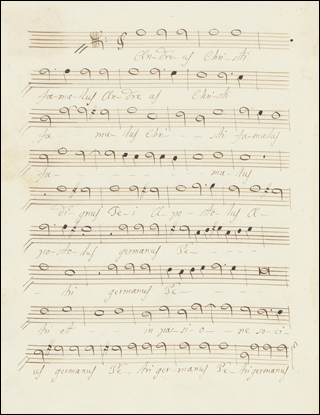 An-dre-as Chri-sti
famulus An-dre-as Chri-sti
fa - mulus Chri - - - sti famulus
fa - - - - - - mulus
dignus De-i A-po-sto-lus A-
po-sto-lus germanus Pe - - - -
tri germanus Pe - - - - -
tri et - - - - in pas-si-o-ne so-ci-
us germanus Pe-tri germanus Pe-tri germanus